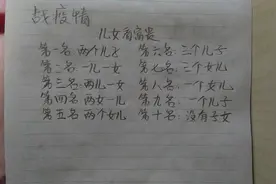 战疫情
儿女有富贵
第一名：两个儿子 第六名：三个儿子
第二名：一儿一女 第七名：三个女儿
第三名：两儿一女 第八名：一个女儿
第四名：两女一儿 第九名：一个儿子
第五名：两个女儿 第十名：没有子女